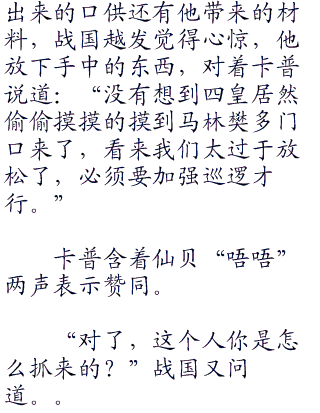 出来的口供还有他带来的材
料，战国越发觉得心惊，他
放下手中的东西，对着卡普
说道：“没有想到四皇居然
偷偷摸摸的摸到马林樊多门
口来了，看来我们太过于放
松了，必须要加强巡逻才
行。”
卡普含着仙贝“唔唔”
两声表示赞同。
“对了，这个人你是怎
么抓来的？”战国又问
道。。